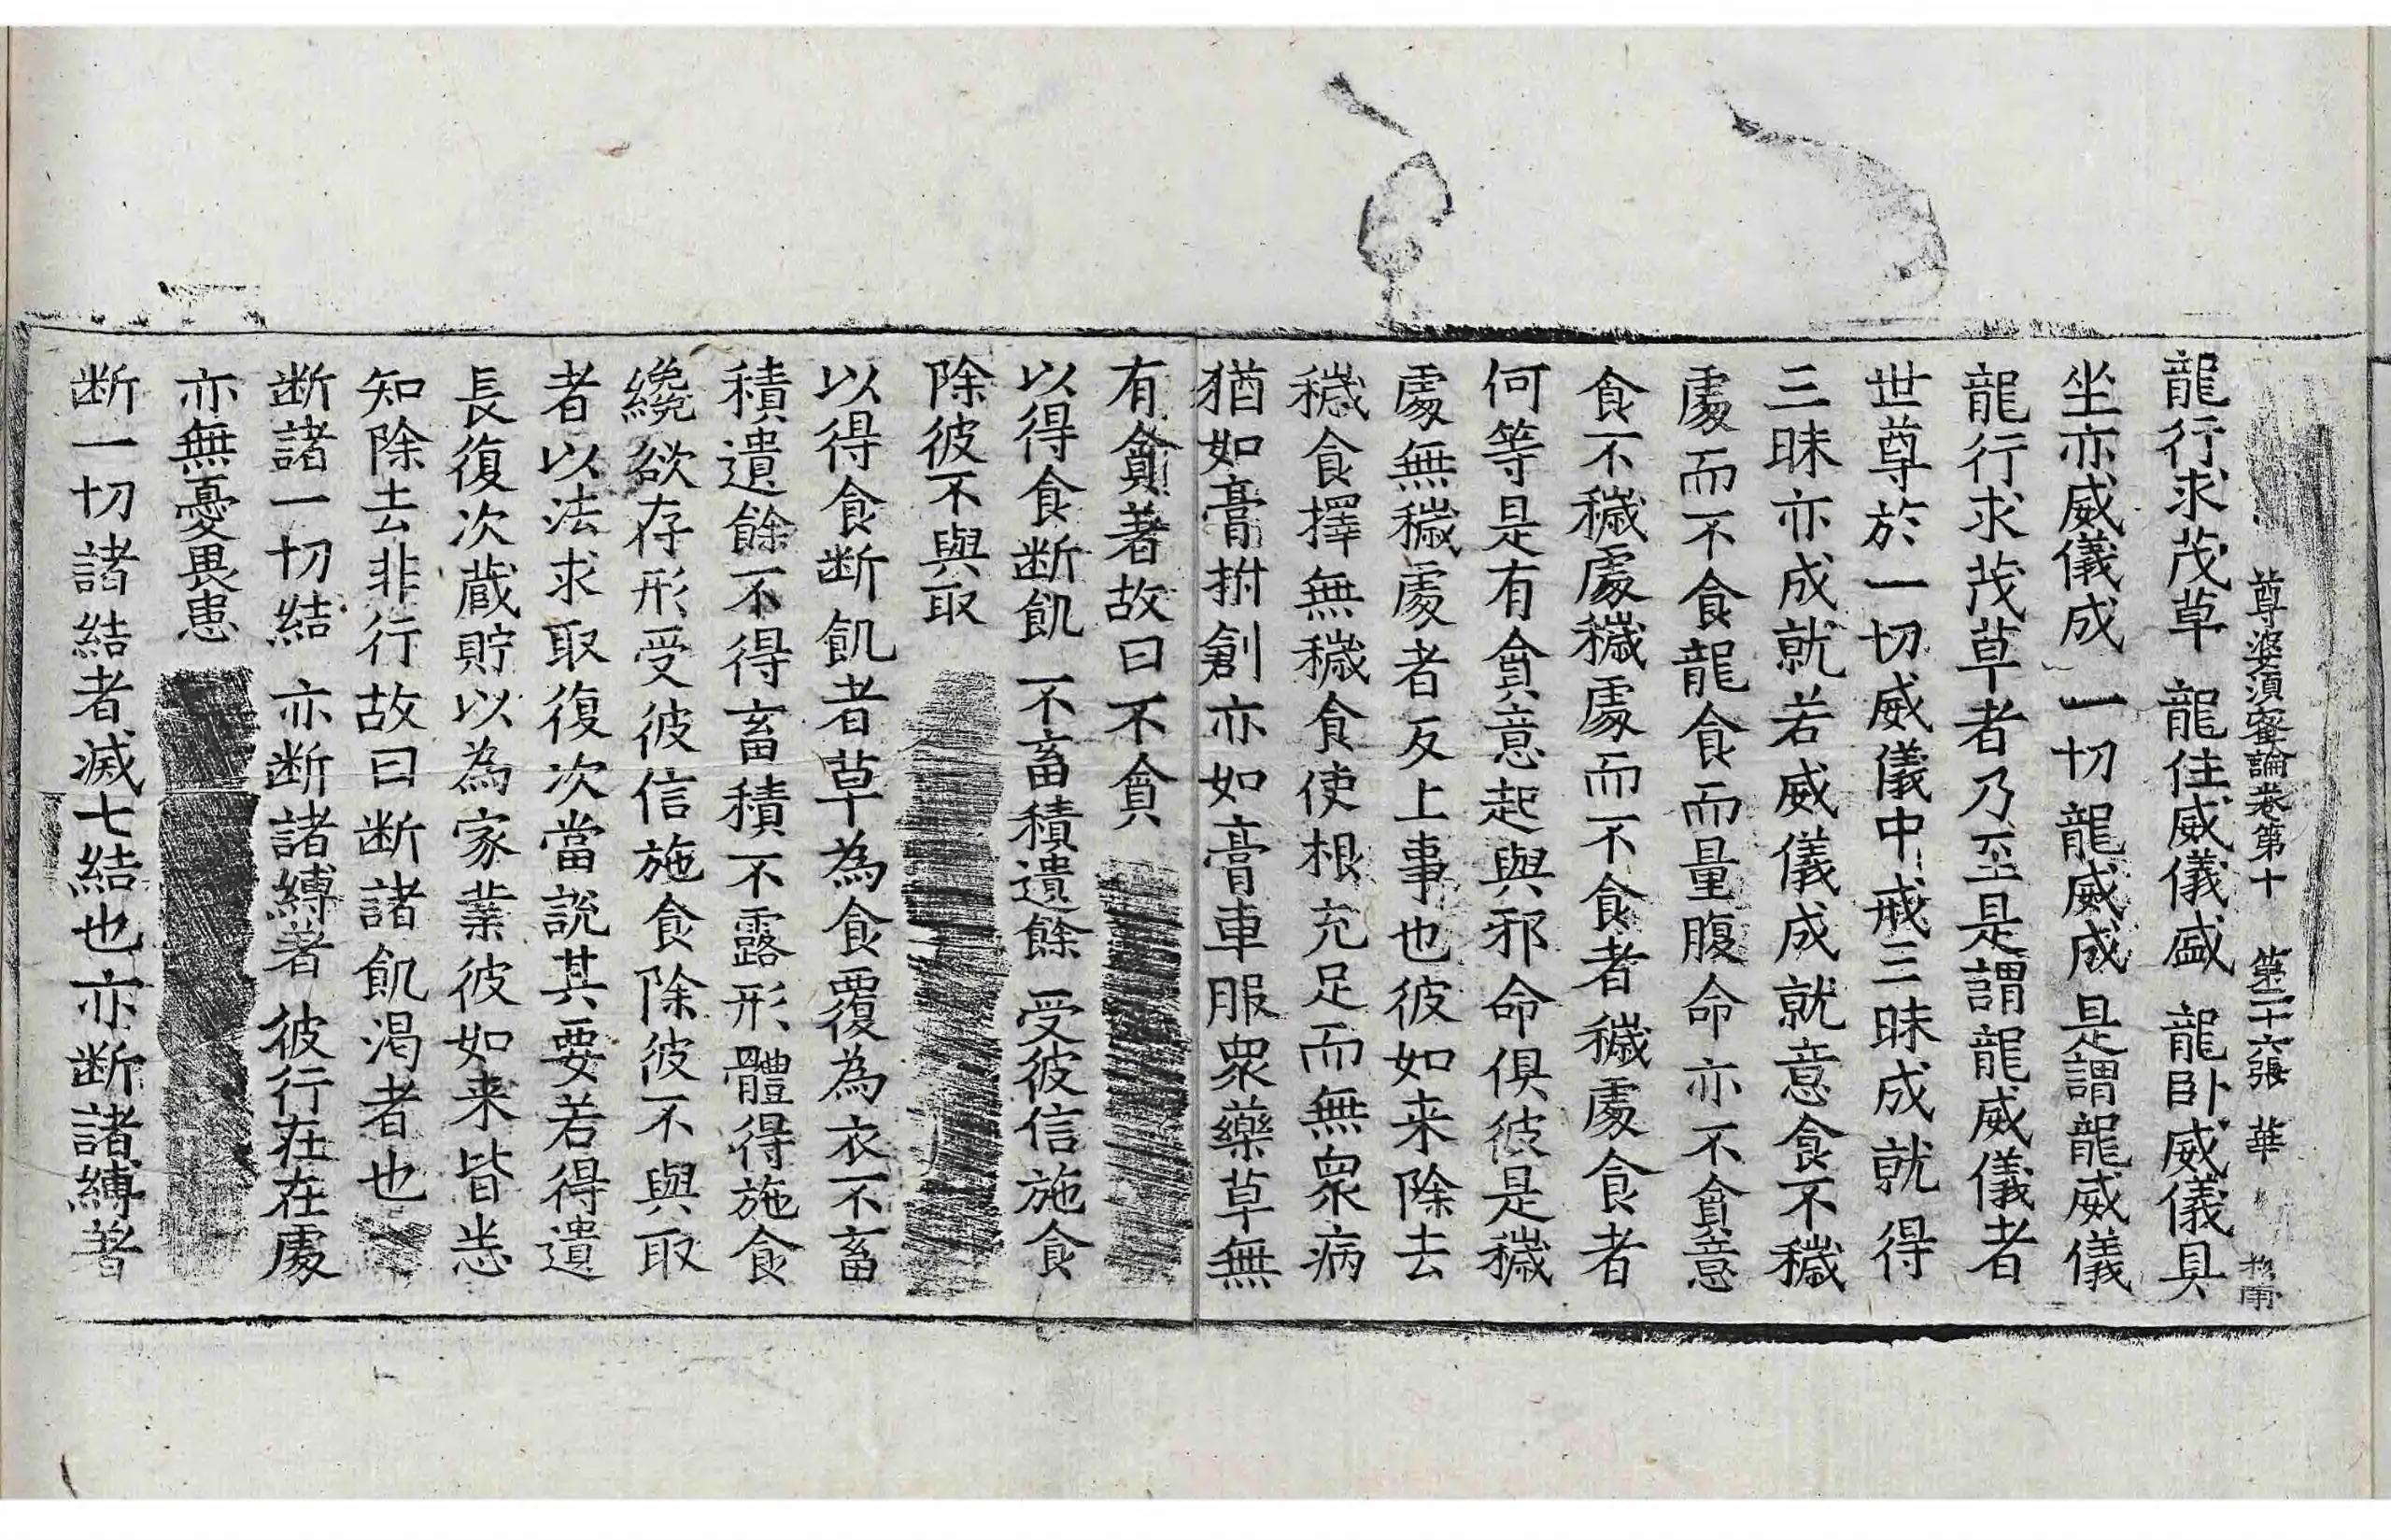 尊婆須蜜論卷第十　第二十六張　華
龍行求茂草　龍住威儀盛　龍卧威儀具
坐亦威儀成　一切龍威成　是謂龍威儀
龍行求茂草者乃至是謂龍威儀者
世尊於一切威儀中戒三昧成就得
三昧亦成就若威儀成就意食不穢
處而不食龍食而量腹命亦不貪意
食不穢處穢處而不食者穢處食者
何等是有貪意起與邪命俱彼是穢
處無穢處者反上事也彼如来除去
穢食擇無穢食使根充足而無衆病
猶如膏拊創亦如膏車服衆藥草無
有貪著故曰不貪
以得食断飢　不畜積遺餘　受彼信施食
除彼不與取
以得食断飢者草為食覆為衣不畜
積遺餘不得畜積不露形體得施食
纔欲存形受彼信施食除彼不與取
者以法求取復次當說其要若得遺
長復次蔵貯以為家業彼如来皆悉
知除去非行故曰断諸飢渴者也
断諸一切結　亦断諸縛著　彼行在在處
亦無憂畏患
断一切諸結者滅七結也亦断諸縛著